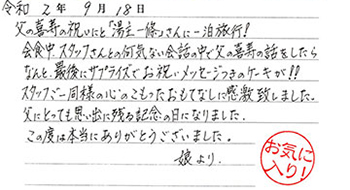 令和 2年 9月18日
父の喜寿の祝いにと「湯主一條」さんに一泊旅行!
会食中、スタッフさんとの何気ない会話の中で父の喜寿の話をしたら
なんと、最後にサプライズでお祝いメッセージつきのケーキが!!
スタッフご一同様の心のこもったおもてなしに感激致しました。
父にとっても思い出に残る記念の日になりました。
この度は本当にありがとうございました。
娘より.
お気に
入り!